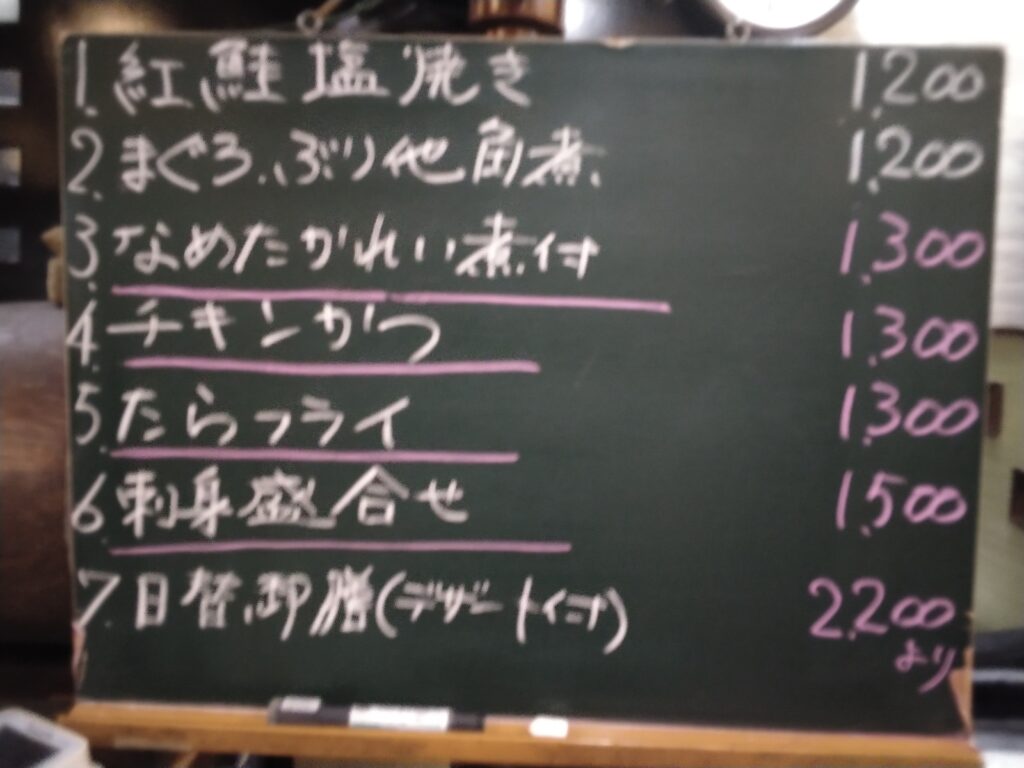 1. 紅鮭塩焼き 1,200
2. まぐろ、ぶり他角煮 1,200
3. なめたがれい煮付 1,300
4. チキンかつ 1,300
5. たらフライ 1,300
6. 刺身盛合せ 1,500
7. 日替御膳(デザート付) 2,200
より